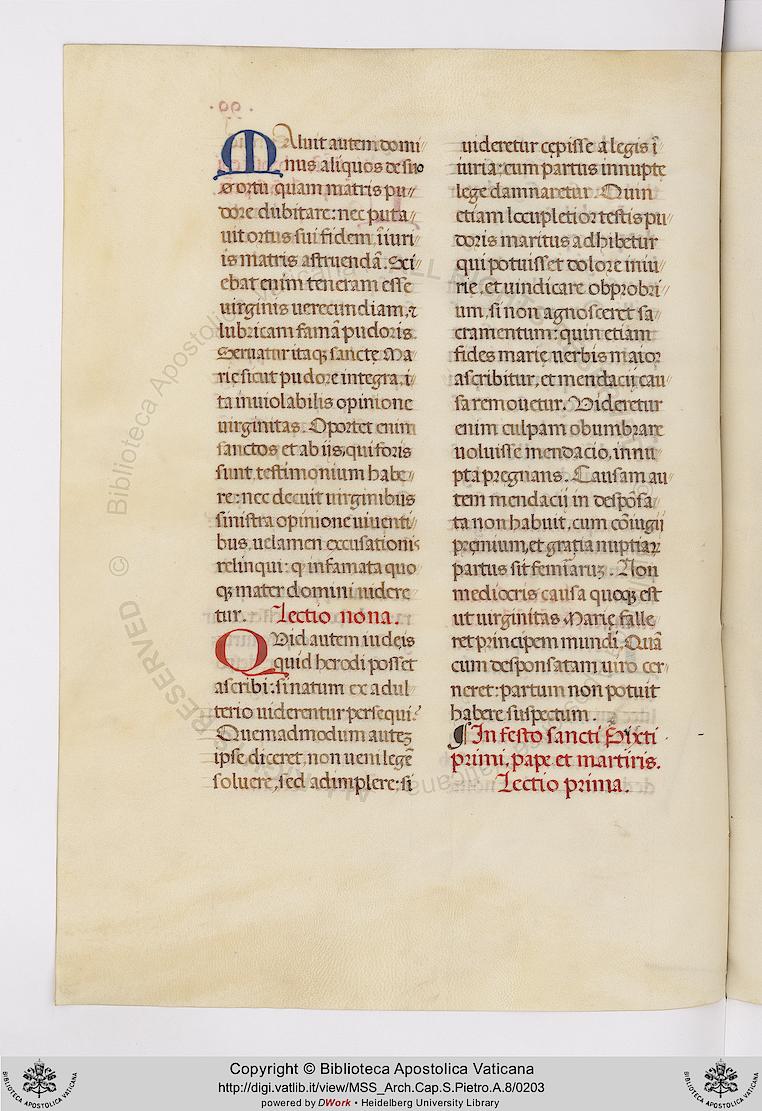 Maluit autem domi
nus aliquos de suo
ortu quam matris pu
dore dubitare: nec puta
uit ortus sui fidem, ĩiuri
is matris astruendã. Sci
ebat enim teneram esse
uirginis uerecundiam, ⁊
lubricam famã pudoris.
Seruatur itaqꝫ sanctę Ma
rię sicut pudore integra, i
ta inuiolabilis opinione
uirginitas. Oportet enim
sanctos et ab iis, qui foris
sunt, testimonium habe
re: nec decuit uirginibus
sinistra opinione uiuenti
bus, uelamen excusationis
relinqui: ꝙ infamata quo
qꝫ mater domini uidere
tur. Lectio nona.
Quid autem iudeis
quid herodi posset
ascribi: si natum ex adul
terio uiderentur persequi?
Quemadmodum auteꝫ
ipse diceret, non ueni legẽ
soluere, sed adimplere: si
uideretur cępisse a legis ĩ
iuria: cum partus innuptę
lege damnaretur. Quin
etiam locupletior testis pu
doris maritus adhibetur
qui potuisset dolore iniu
rię, et uindicare obprobri
um, si non agnosceret sa
cramentum: quin etiam
fides marię uerbis maior
ascribitur, et mendacij cau
sa remouetur. Videretur
enim culpam obumbrare
uoluisse mendacio, innu
pta pregnans. Causam au
tem mendacij in desponsa
ta non habuit, cum cõiugij
premium, et gratia nuptiaꝝ
partus sit femĩaruꝫ. Non
mediocris causa quoqꝫ est
ut uirginitas Marię falle
ret principem mundi. Quã
cum desponsatam uiro cer
neret: partum non potuit
habere suspectum.
¶ In festo sancti Sixti
primi, pape et martiris.
Lectio prima.
Copyright © Biblioteca Apostolica Vaticana
http://digi.vatlib.it/view/MSS_Arch.Cap.S.Pietro.A.8/0203
powered by DWork • Heidelberg University Library
BIBLIOTECA APOSTOLICA VATICANA
BIBLIOTECA APOSTOLICA VATICANA